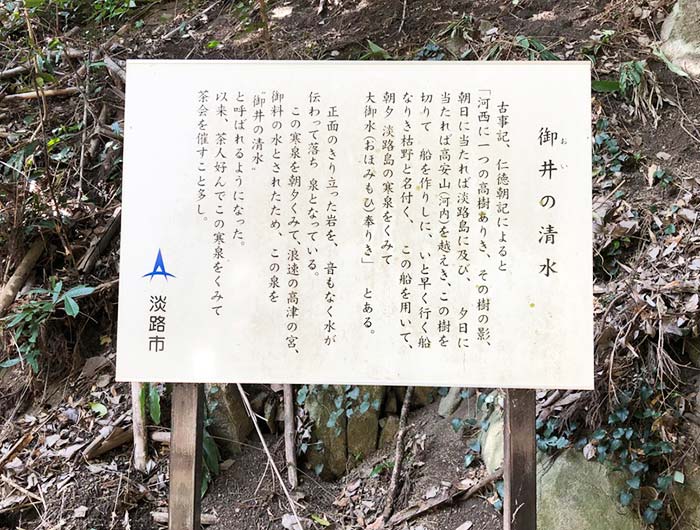 御井の清水
おい
古事記、仁徳朝記によると
「河西に一つの高樹ありき、その樹の影、
朝日に当たれば淡路島に及び、夕日に
当たれば高安山(河内)を越えき、この樹を
切りて 船を作りしに、いと早く行く船
なりき枯野と名付く、この船を用いて、
朝夕 淡路島の寒泉をくみて
大御水(おほみもひ)奉りき」 とある。
正面のきり立った岩を、音もなく水が
伝わって落ち 泉となっている。
この寒泉を朝夕くみて、浪速の高津の宮、
御料の水とされたため、この泉を
"御井の清水"
と呼ばれるようになった。
以来、茶人好んでこの寒泉をくみて
茶会を催すこと多し。
淡路市